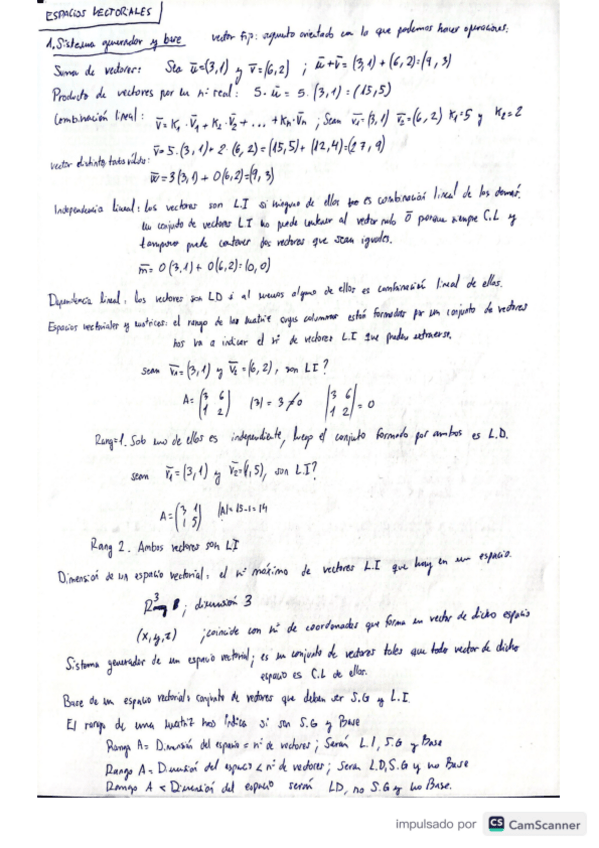 ESPACIOS VECTORIALES
1. Sistema generador y base vector fijo: segmento orientado con lo que podemos hacer operaciones.
Suma de vectores: Sea ū=(3,1) y v̄=(6,2) ; ū+v̄=(3,1)+(6,2)=(9,3)
Producto de vectores por un nº real: 5·ū = 5·(3,1)=(15,5)
Combinación lineal: v̄=K₁·v̄₁+K₂·v̄₂+...+Kn·v̄n ; Sean v̄₁=(3,1) v̄₂=(6,2) K₁=5 y K₂=2
v̄=5·(3,1)+2·(6,2)=(15,5)+(12,4)=(27,9)
vector distinto,
w̄=3(3,1)+0(6,2)=(9,3)
Independencia lineal: Los vectores son L.I si ninguno de ellos es combinación lineal de los demás.
Un conjunto de vectores LI no puede contener al vector nulo 0̄ porque siempre C.L y
tampoco puede contener dos vectores que sean iguales.
m̄=0(3,1)+0(6,2)=(0,0)
Dependencia lineal: Los vectores son LD si al menos alguno de ellos es combinación lineal de ellos.
Espacios vectoriales y matrices: el rango de la matriz cuyas columnas están formadas por un conjunto de vectores
nos va a indicar el nº de vectores L.I que pueden extraerse.
sean v̄₁=(3,1) y v̄₂=(6,2), son LI?
A=(3 6 1 2) |3|=3≠0 |3 6 1 2|=0
Rang=1. Solo uno de ellos es independiente, luego el conjunto formado por ambos es L.D.
sean v̄₁=(3,1) y v̄₂=(1,5), son LI?
A=(3 1 1 5) |A|=15-1=14
Rang 2. Ambos vectores son LI
Dimensión de un espacio vectorial: el nº máximo de vectores LI que hay en un espacio.
R³; dimensión 3
(x,y,z) ; coincide con nº de coordenadas que forma un vector de dicho espacio
Sistema generador de un espacio vectorial; es un conjunto de vectores tales que todo vector de dicho
espacio es C.L de ellos.
Base de un espacio vectorial: conjunto de vectores que deben ser S.G y L.I.
El rango de una matriz nos indica si son S.G y Base
Rango A = Dimensión del espacio = nº de vectores; Serán L.I, S.G y Base
Rango A = Dimensión del espacio < nº de vectores; Serán L.D, S.G y no Base
Rango A < Dimensión del espacio serán LD, no S.G y no Base.
impulsado por CS CamScanner